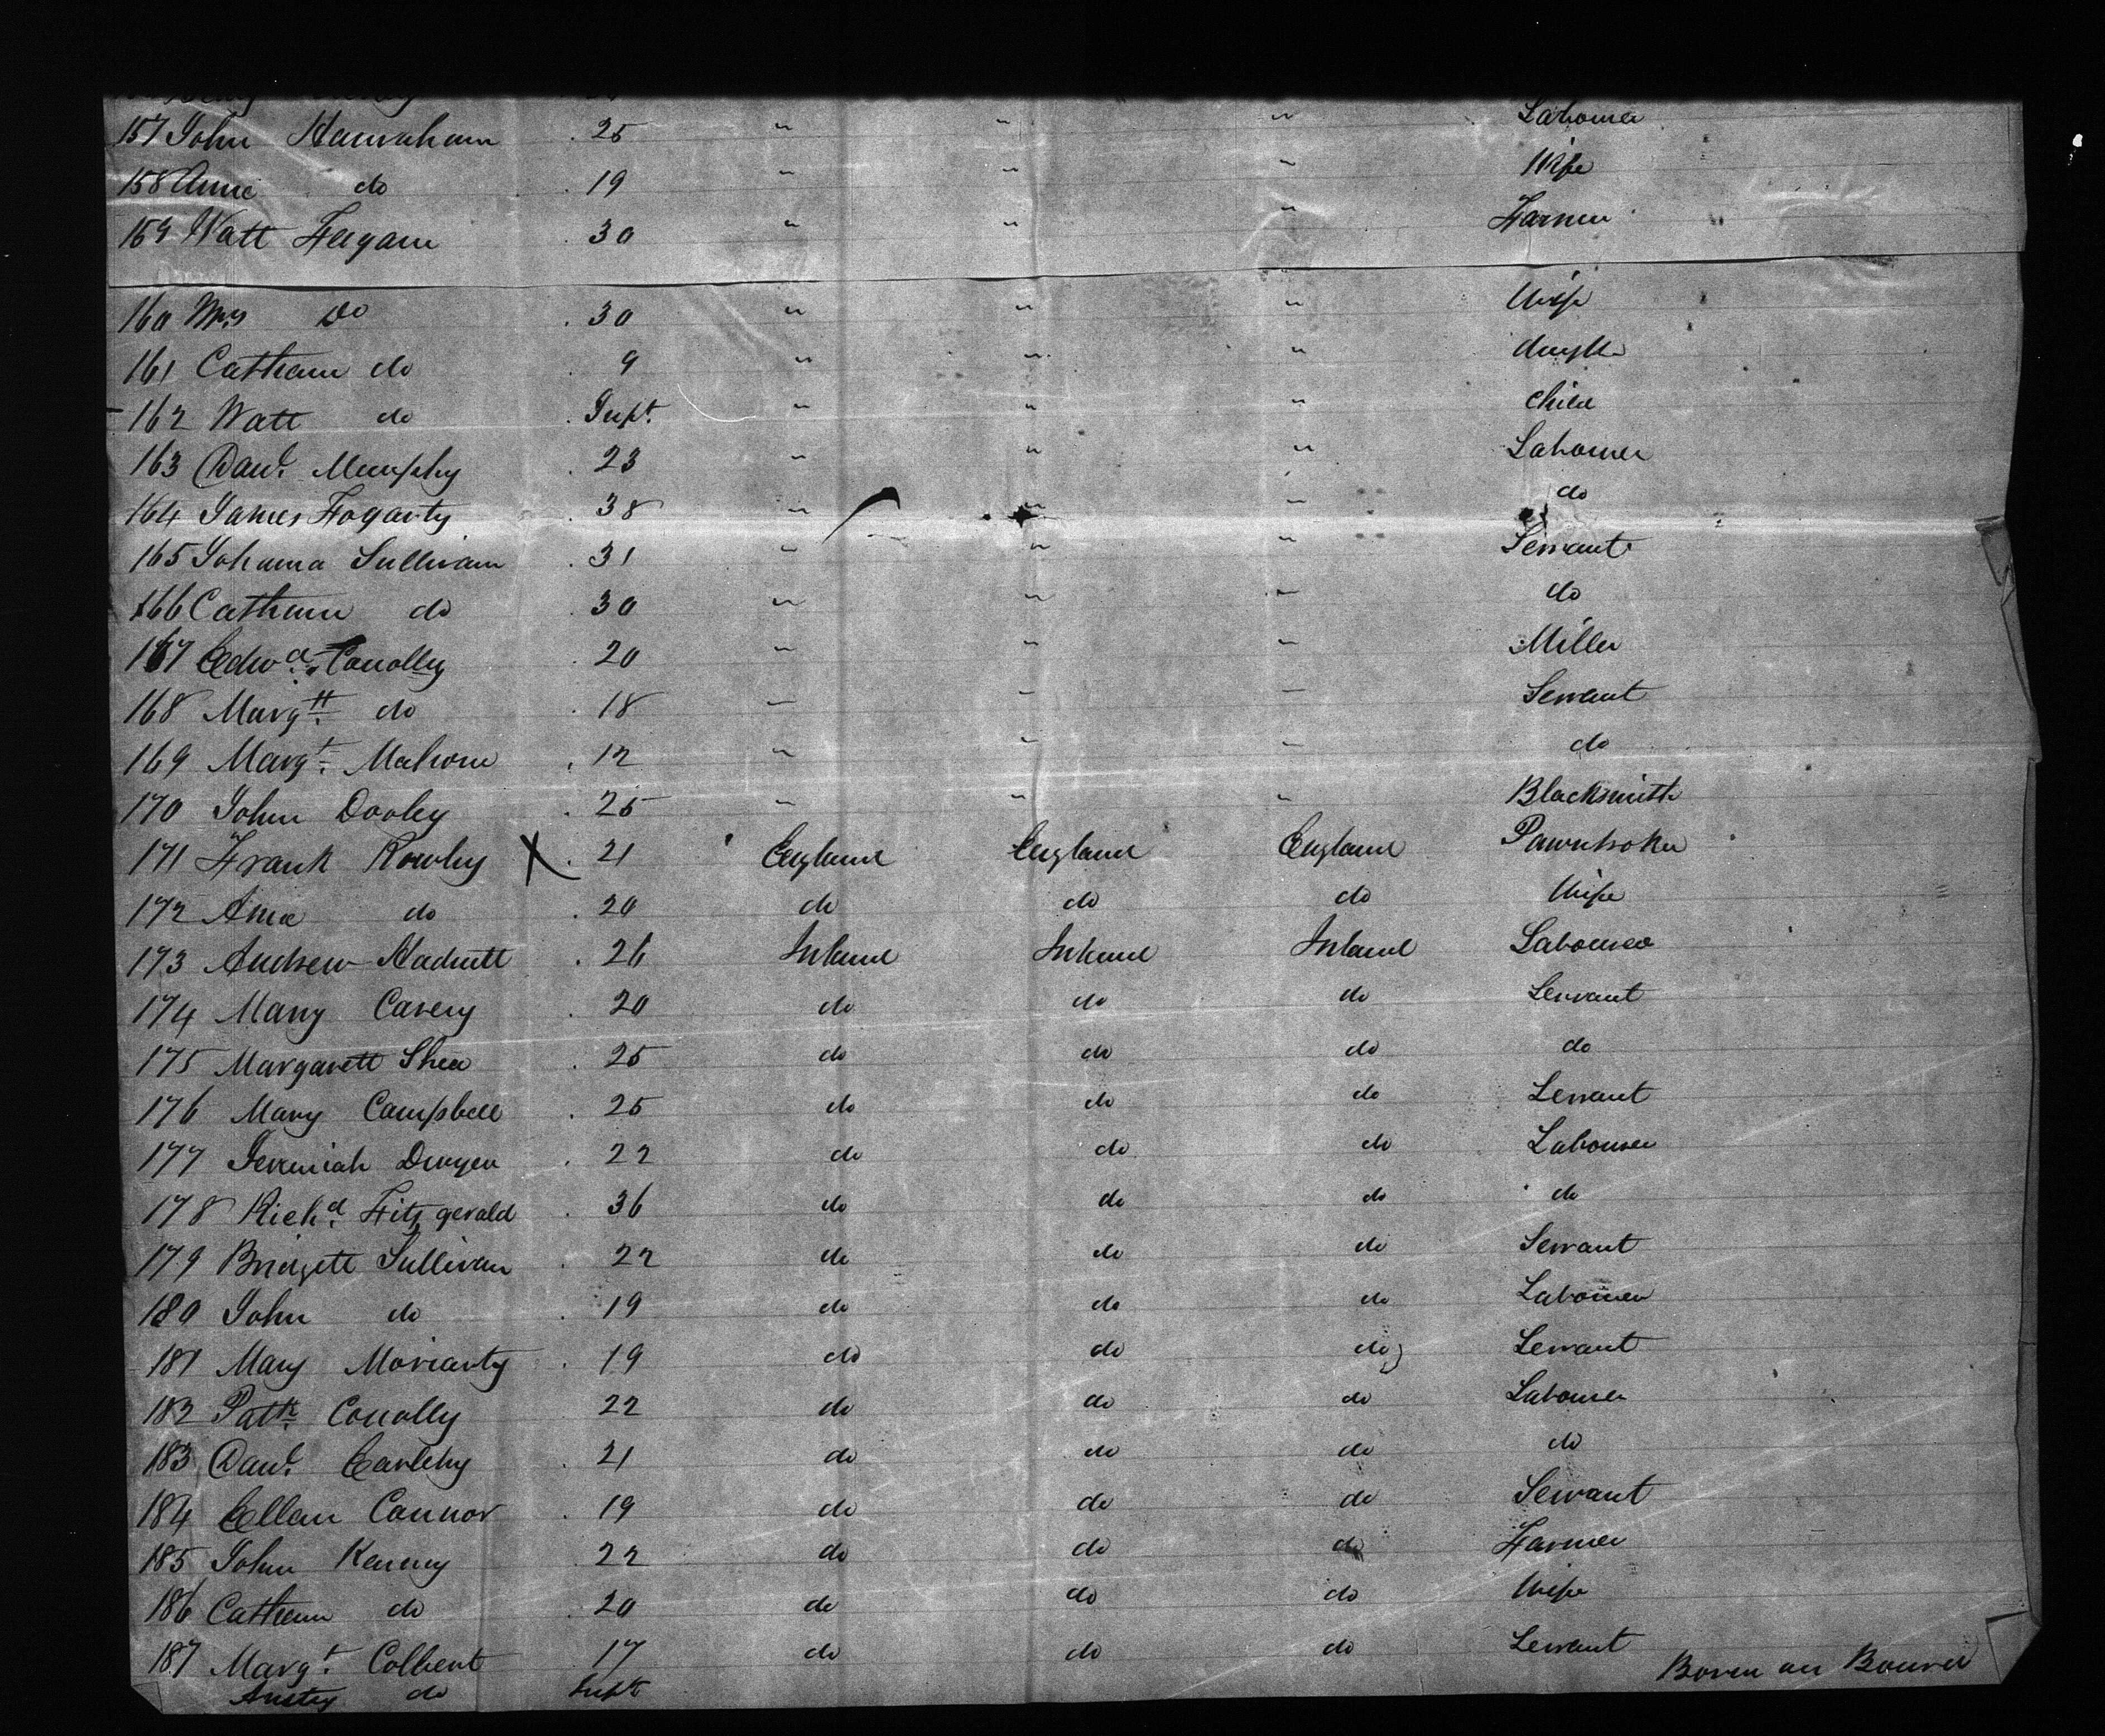 157 John Hanrahan . 25 " " " Labourer
158 Anne do . 19 " " " Wife
159 Watt Feegan . 30 " " " Farmer
160 Mrs Do . 30 " " " Wife
161 Cathean do . 9 " " "
162 Watt do . Inft. " " " Child
163 Danl. Murphy . 23 " " " Labourer
164 James Fogarty . 38 " " " do
165 Johanna Sullivan . 31 " " " Servant
166 Cathean do . 30 " " " do
167 Edwd. Conolly . 20 " " " Miller
168 Margtt. do . 18 " " " Servant
169 Margt. Malrone . 12 " " " do
170 John Dooley . 25 " " " Blacksmith
171 Frank Rowley X . 21 England England England Pawnbroker
172 Ama do . 20 do do do Wife
173 Andrew Hadnett . 26 Ireland Ireland Ireland Labourer
174 Mary Casey . 20 do do do Servant
175 Margarett Shea . 25 do do do do
176 Mary Campbell . 25 do do do Servant
177 Jeremiah Dwyer . 22 do do do Labourer
178 Richd. Fitzgerald . 36 do do do do
179 Bridgett Sullivan . 22 do do do Servant
180 John do . 19 do do do Labourer
181 Mary Moriarty . 19 do do do Servant
182 Patk. Conolly . 22 do do do Labourer
183 Danl. . 21 do do do do
184 Ellen Connor . 19 do do do Servant
185 John Kenny . 22 do do do Farmer
186 Cathean do . 20 do do do Wife
187 Margt. Colbert . 17 do do do Servant
do Inft Boren on Bourd